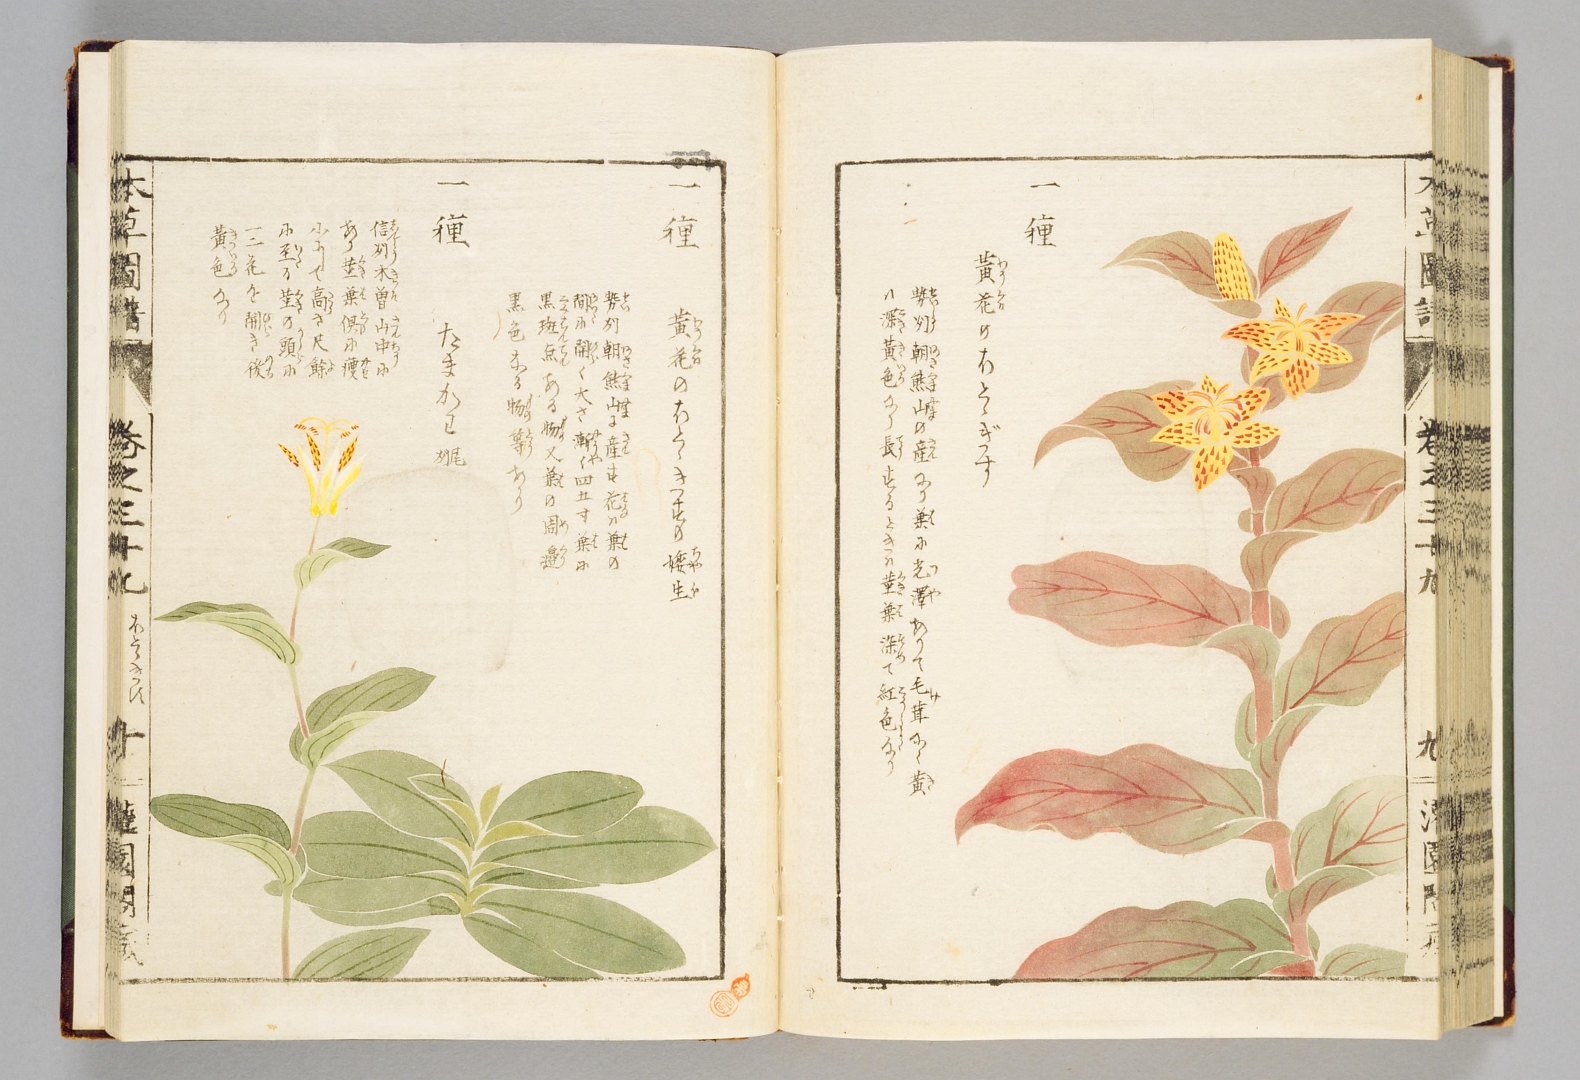 一種
黄花のほとゝぎす
勢州朝熊山の産なり葉に光澤ありて毛茸なく黄花
ハ深黄色なり長ずるときハ莖葉深て紅色なり
本草圖譜
卷之三十九
九
一種
黄花のほとゝきすの嫩生
勢州朝熊山に産す花ハ葉の
間に開く大さ漸く四五寸葉に
黒斑点ある物又葉の周邉
黒色なる物等あり
一種
たまがわ
信州木曽山中に
あり莖葉倶に痩
小にして高さ尺餘
に至る莖の頭に
一二花を開き後
黄色なり
本草圖譜
卷之三十九
ほとゝきす
十